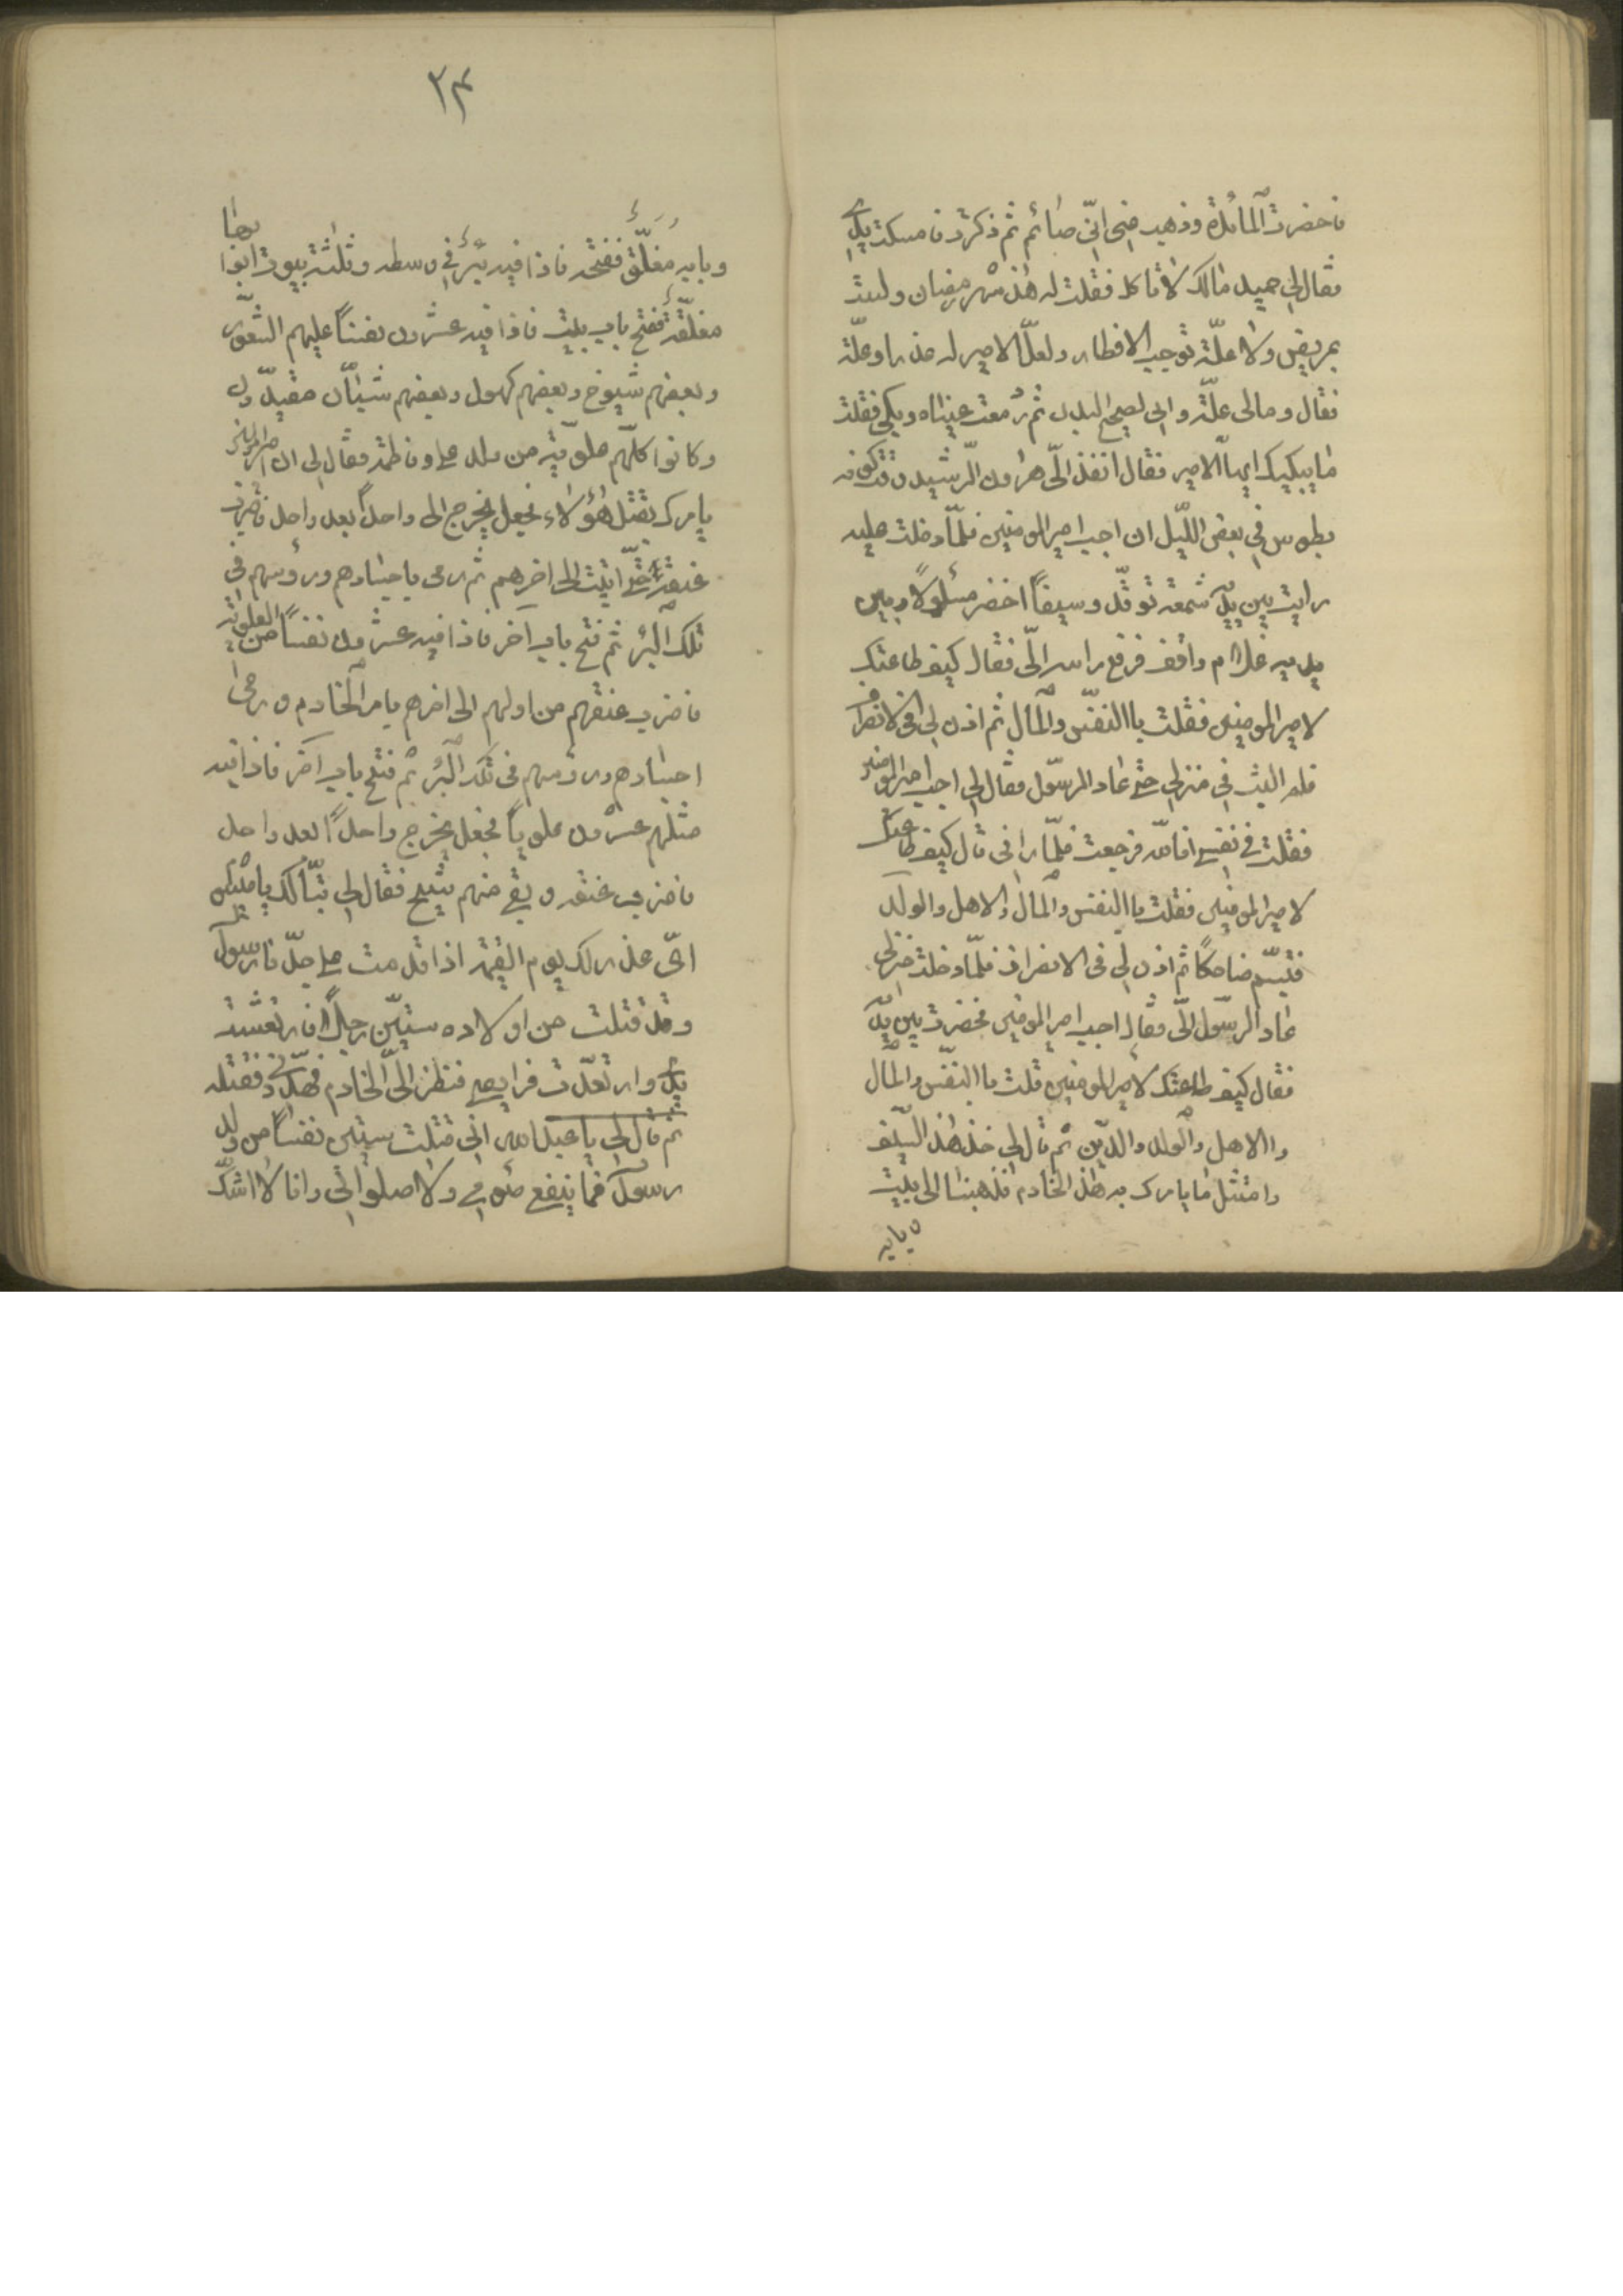 فاحضرت المائدة وذهب منى انّى صائم ثم ذكرت فامسكت يدى
فقال لى حميد مالك لا تاكل فقلت له هذا شهر رمضان ولست
بمريض ولا علّة توجب الافطار ولعلّ الامير له عذرا وعلّة
فقال ومالى علّة وانى لصحيح البدن ثم دمعت عيناه وبكى فقلت
ما يبكيك ايها الامير فقال انفذ الىّ هرون الرّشيد وقت كونه
بطوس فى بعض اللّيل ان اجب امير المومنين فلمّا دخلت عليه
رايت بين يديه شمعة توقد وسيفاً اخضر مسلولاً وبين
يديه غلام واقف فرفع راسه الىّ فقال كيف طاعتك
لامير المومنين فقلت باالنفس والمال ثم اذن لى فى الانصراف
فلم البث فى منزلى حتى عاد الرسول فقال لى اجب امير المومنين
فقلت فى نفسى انا لله فرجعت فلمّا رانى قال كيف طاعتك
لامير المومنين فقلت باالنفس والمال والاهل والولد
فتبسّم ضاحكاً ثم اذن لى فى الانصراف فلمّا دخلت منزلى
عاد الرسول الىّ فقال اجب امير المومنين فحضرت بين يديه
فقال كيف طاعتك لامير المومنين قلت باالنفس والمال
والاهل والولد والدّين ثم قال لى خذ هذا السّيف
وامتثل ما يامرك به هذا الخادم فذهبنا الى بيت
وبابه
٣٤
وبابه مغلّق ففتحه فاذا فيه بئر فى وسطه وثلثة بيوت ابوابها
مغلّقة ففتح باب بيت فاذا فيه عشرون نفساً عليهم الشعور
وبعضهم شيوخ وبعضهم كهول وبعضهم شبّان مقيّدون
وكانوا كلّهم علويّة من ولد على وفاطمة فقال لى ان امير المومنين
يامرك بقتل هؤلاء فجعل يخرج الى واحداً بعد واحد فاضرب
عنقه حتّى اتيت الى اخرهم ثم رمى باجسادهم ورؤسهم فى
تلك البئر ثم فتح باب آخر فاذا فيه عشرون نفساً من العلويّة
فاضرب عنقهم من اولهم الى اخرهم يامر الخادم ورمى
اجسادهم ورؤسهم فى تلك البئر ثم فتح باب آخر فاذا فيه
مثلهم عشرون علوياً فجعل يخرج واحداً بعد واحد
فاضرب عنقه وبقى منهم شيخ فقال لى تبّاً لك يا ميشوم
اىّ عذر لك يوم القيمة اذا قدمت على جدّنا رسول الله
وقد قتلت من اولاده ستّين رجلاً فارتعشت
يدى وارتعدت فرايصى فنظر الىّ الخادم فهدّدنى فقتلته
ثم قال لى يا عبد الله انى قتلت ستين نفساً من ولد
رسول الله فما ينفع صومى ولا صلواتى وانا لا اشك